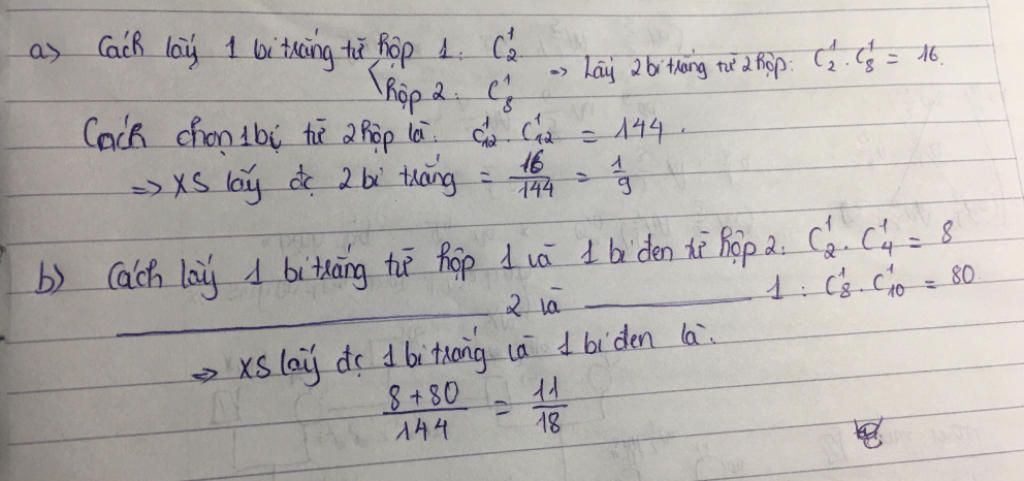 a) Cách lấy 1 bi trắng từ hộp 1: C₂¹
hộp 2: C₈¹ => Lấy 2 bi trắng từ 2 hộp: C₂¹ . C₈¹ = 16.
Cách chọn 1 bi từ 2 hộp là: C₁₂¹ . C₁₂¹ = 144.
=> XS lấy đc 2 bi trắng = 16/144 = 1/9
b) Cách lấy 1 bi trắng từ hộp 1 và 1 bi đen từ hộp 2: C₂¹ . C₄¹ = 8
2 và 1 : C₈¹ . C₁₀¹ = 80.
=> XS lấy đc 1 bi trắng và 1 bi đen là:
(8 + 80)/144 = 11/18